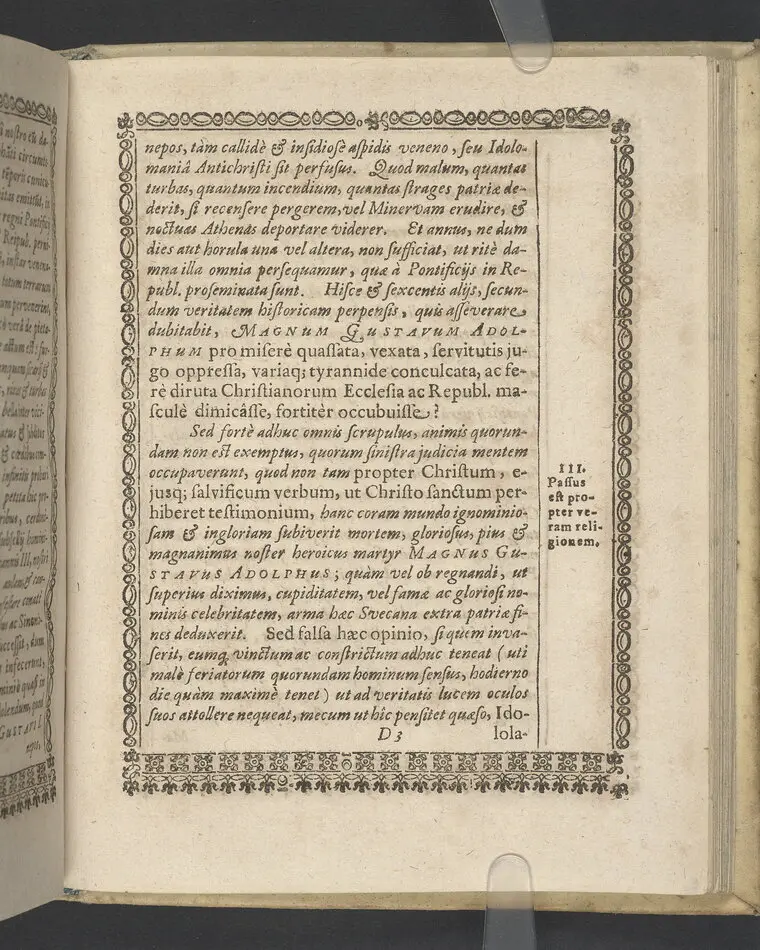 nepos, tàm callidè & insidiosè aspidis veneno, seu Idolo-
maniâ Antichristi sit perfusus. Quod malum, quantas
turbas, quantum incendium, quantas strages patriæ de-
derit, si recensere pergerem, vel Minervam erudire, &
noctuas Athenas deportare viderer. Et annus, ne dum
dies aut horula una vel altera, non sufficiat, ut ritè da-
mna illa omnia persequamur, quæ à Pontificijs in Re-
publ. proseminata sunt. Hisce & sexcentis alijs, secun-
dum veritatem historicam perpensis, quis asseverare
dubitabit, MAGNUM GUSTAVUM ADOL-
PHUM pro miserè quassata, vexata, servitutis ju-
go oppressa, variaq; tyrannide conculcata, ac fe-
rè diruta Christianorum Ecclesia ac Republ. ma-
sculè dimicâsse, fortitèr occubuisse?
Sed fortè adhuc omnis scrupulus, animis quorun-
dam non est exemptus, quorum sinistra judicia mentem
occupaverunt, quod non tam propter Christum, e-
jusq; salvificum verbum, ut Christo sanctum per-
hiberet testimonium, hanc coram mundo ignominio-
sam & ingloriam subiverit mortem, gloriosus, pius &
magnanimus noster heroicus martyr MAGNUS GU-
STAVUS ADOLPHUS; quàm vel ob regnandi, ut
superius diximus, cupiditatem, vel famæ ac gloriosi no-
minis celebritatem, arma hæc Svecana extra patriæ fi-
nes deduxerit. Sed falsa hæc opinio, si quem inva-
serit, eumq; vinctum ac constrictum adhuc teneat (uti
malè feriatorum quorundam hominum sensus, hodierno
die quàm maximè tenet) ut ad veritatis lucem oculos
suos attollere nequeat, mecum ut hîc pensitet quæso, Ido-
D 3
lola-
III.
Passus
est pro-
pter ve-
ram reli-
gionem.